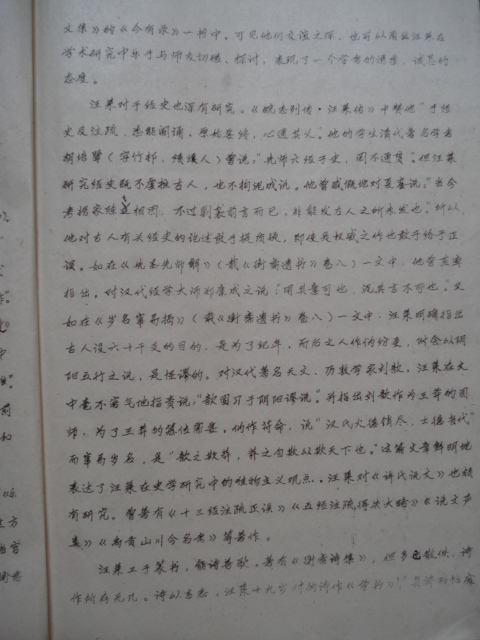 文集》的《今有录》一书中。可见他们交谊之深,也可以看出汪莱在
学术研究中乐于与师友切磋、探讨,表现了一个学者的谦虚、诚恳的
态度。
汪莱对于经史也深有研究。《皖志列传·汪莱传》中赞他"于经
史及注疏,悉能阐诵,原始要终,心通其义。"他的学生清代著名学者
胡培翚(字竹邨,绩溪人)曾说:"先师六经子史,罔不通贯。"但汪莱
研究经史既不废推古人,也不拘泥成说。他曾感慨地对夏銮说:"当今
考据家
相因,不过剿袭前言而已,非能发古人之所未发也。"所以,
他对古人有关经史的论述敢于提质疑,即使是权威之作也敢于给予正
误。如在《
》(载《衡斋遗书》卷八)一文中,他曾直率
指出,对汉代经学大师郑康成之说:"用其意可也,泥其言不可也。"又
如在《岁名
》(载《衡斋遗书》卷八)一文中,汪莱明确指出
古人设六十干支的目的,是为了纪年,而后之人作伪纷更,附会以阴
阳五行之说,是怪谬的。对汉代著名天文、历数学家刘歆,汪莱在文
中毫不客气地指责说:"歆囿习于阴阳谬说。"并指出刘歆作为王莽的国
师,为了王莽的篡位需要,伪作符命,说"汉代火德销尽,土德当代"
而
岁名,是"欺之欺莽,莽之自欺以欺天下也。"这篇文章鲜明地
表达了汪莱在史学研究中的唯物主义观点。汪莱对《许氏说文》也颇
有研究。曾著有《十三经注疏正误》《五经注疏得失大略》《说文声
类》《禹贡山川今名考》等著作。
汪莱工于篆书,能诗善歌。著有《衡斋诗集》,但多已散佚,诗
作所存无几。诗以言志,汪莱十九岁时